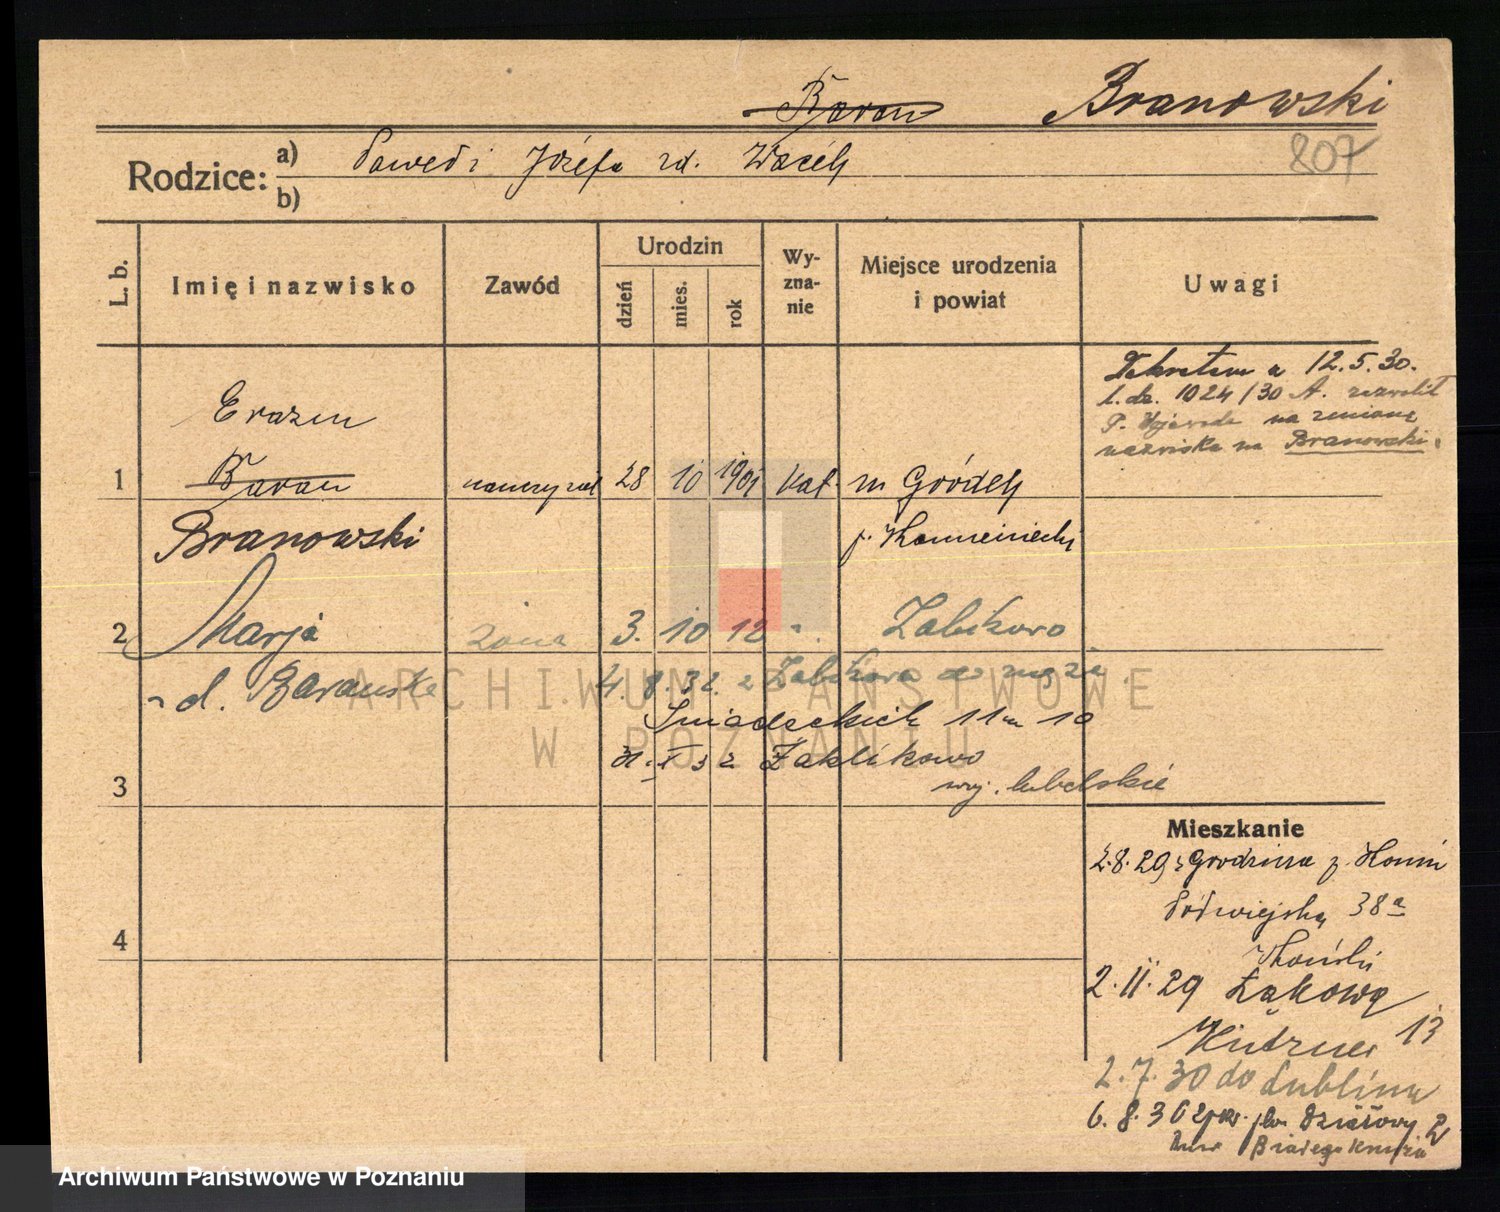 Baran Branowski
807
Rodzice: a) Paweł i Józefa zd. Wacek
b)
L. b. Imię i nazwisko Zawód Urodzin dzień mies. rok Wyznanie Miejsce urodzenia i powiat Uwagi
Dekretem z 12.5.30.
l. dz. 1024/30 A. zezwolił
P. Wojewoda na zmianę
nazwiska na Branowski.
Erazm
1 Baran nauczyciel 28 10 1901 kat. m Gródek
Branowski p.
2 Marja żona 3. 10 12 ". Żabikowo
d. Barańska 4. 8. 32. z Żabikowa do męża
Śniadeckich 11 m 10
31. X 32 Zaklikowo
3 woj. lubelskie
Mieszkanie
2.8.29 z Grodzisza p. Konin
Półwiejska 38a
4
2.11.29 Łąkowa
13
2.7.30 do Lublina
6.8.30 Działowy 2
Białego
ARCHIWUM PAŃSTWOWE
W POZNANIU
Archiwum Państwowe w Poznaniu